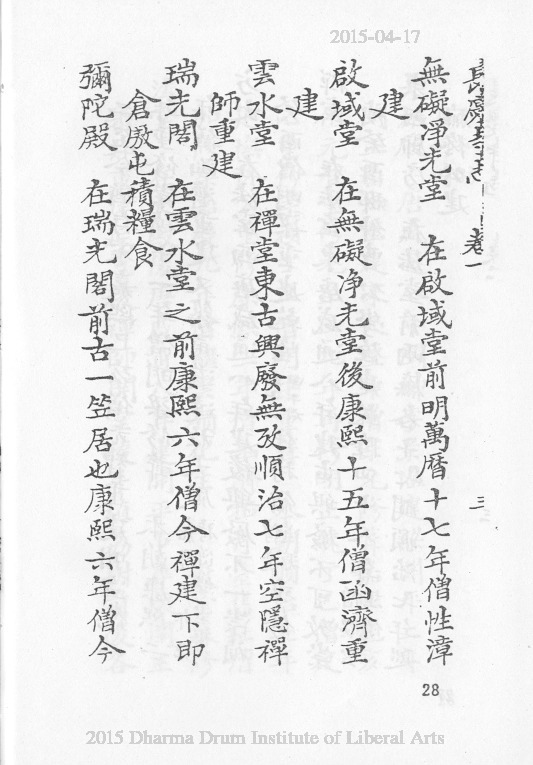 2015-04-17
長慶寺志 卷一 三
無礙淨光堂 在啟域堂前明萬曆十七年僧性漳
建
啟域堂 在無礙净光堂後康熙十五年僧函濟重
建
雲水堂 在禪堂東古興廢無攷順治七年空隱禪
師重建
瑞光閣 在雲水堂之前康熙六年僧今禪建下即
倉廒屯積糧食
彌陀殿 在瑞光閣前古一笠居也康熙六年僧今
28
2015 Dharma Drum Institute of Liberal Arts